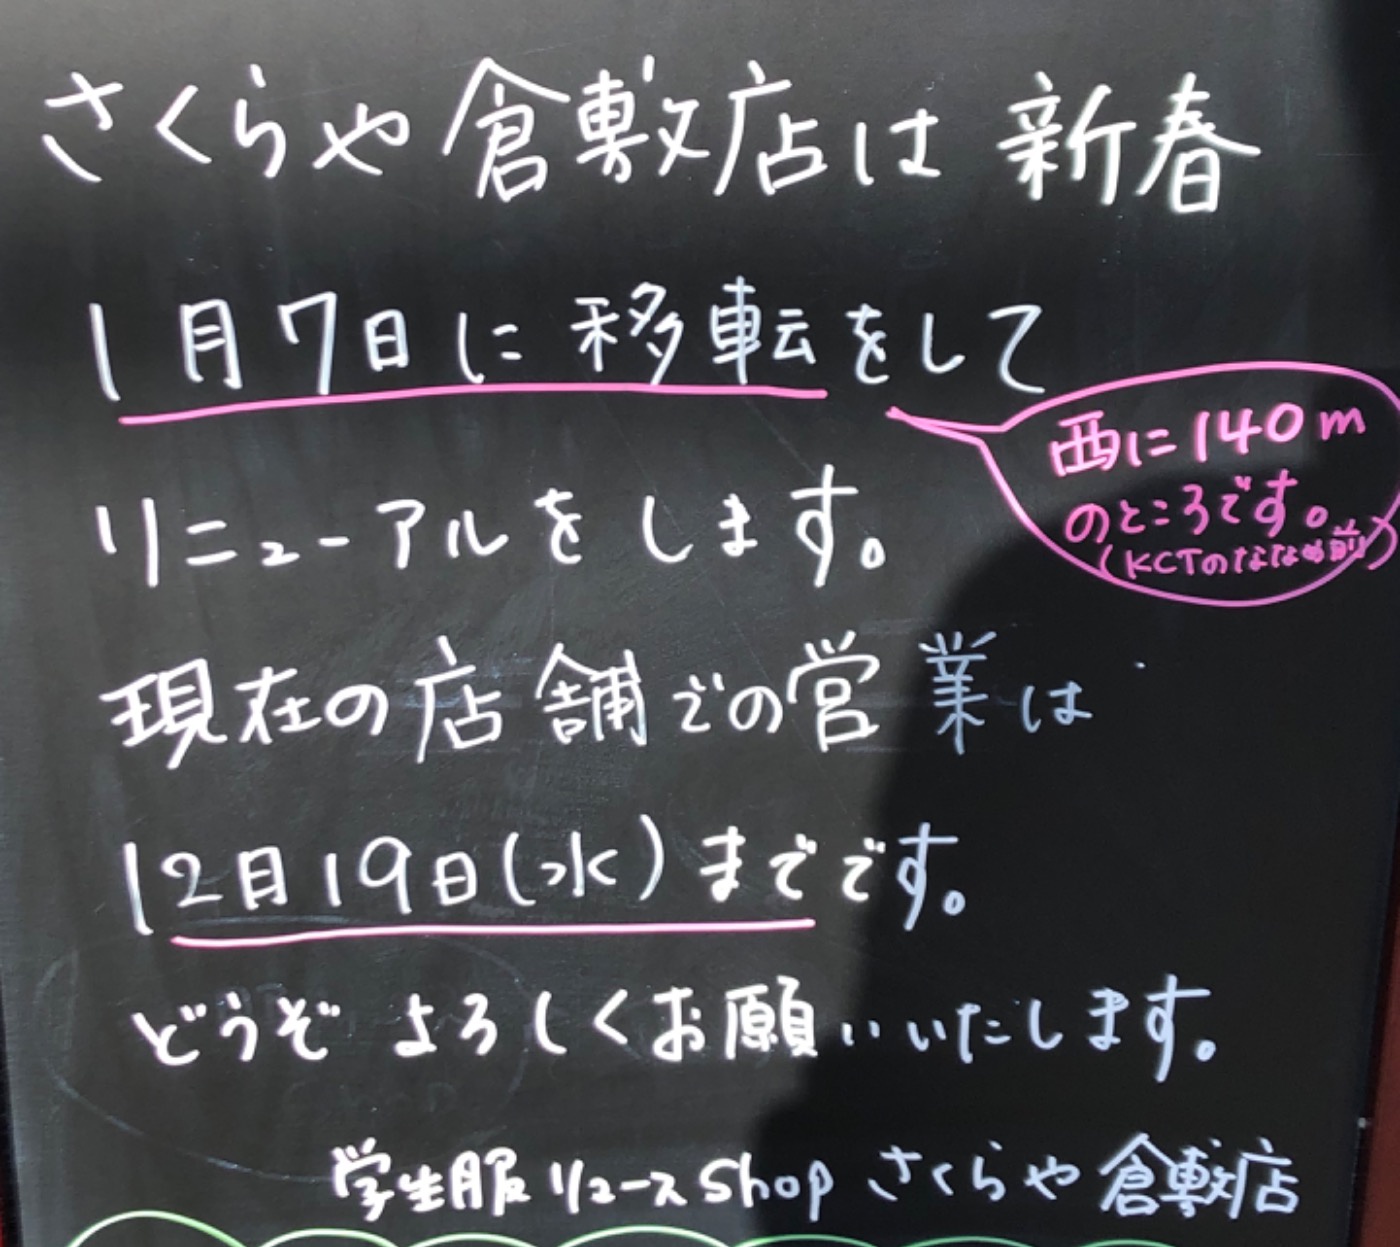 さくらや倉敷店は新春
1月7日に移転をして
西に140m
のところです。
(KCTのななめ前)
リニューアルをします。
現在の店舗での営業は
12月19日(水)までです。
どうぞよろしくお願いいたします。
学生服リユースShopさくらや倉敷店